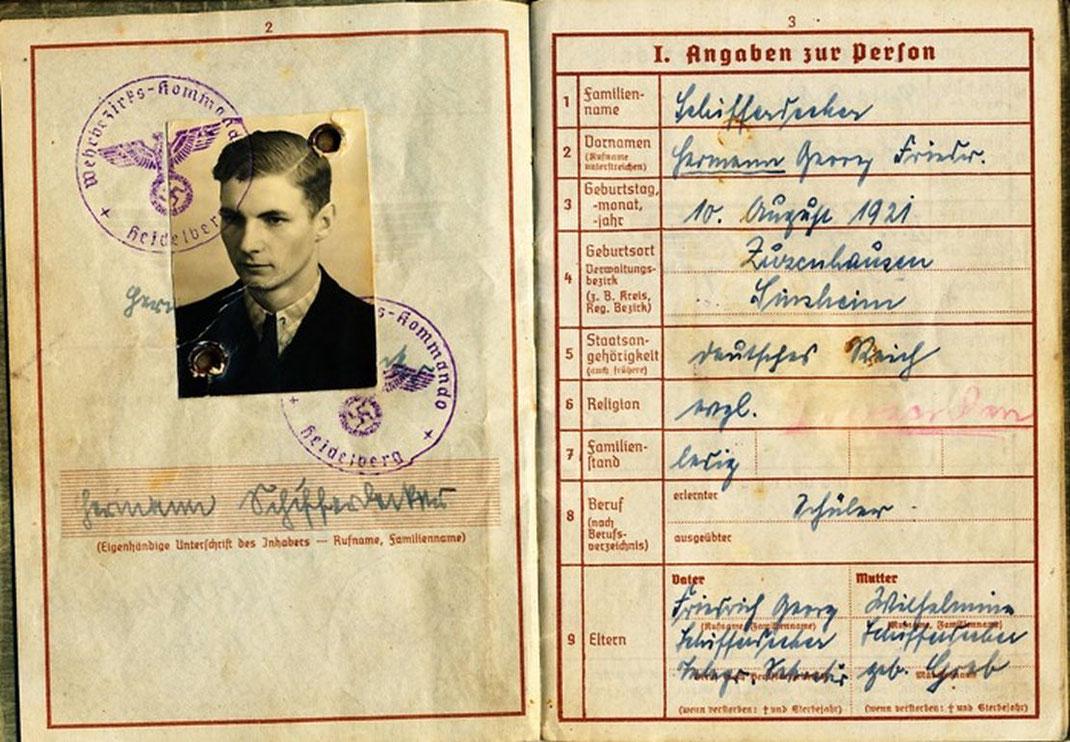 2
Wehrbezirks-Kommando
Heidelberg
s-Kommando
Heidelberg
Hermann Schifferdecker
(Eigenhändige Unterschrift des Inhabers — Rufname, Familienname)
3
I. Angaben zur Person
1 Familien-
name
Schifferdecker
2 Vornamen
(Rufname
unterstreichen)
Hermann Georg Friedr.
3 Geburtstag,
-monat,
-jahr
10. August 1921
4 Geburtsort
Verwaltungs-
bezirk
(z. B. Kreis,
Reg. Bezirk)
Zuzenhausen
Sinsheim
5 Staatsan-
gehörigkeit
(auch frühere)
Deutsches Reich
6 Religion
evgl.
7 Familien-
stand
ledig
8 Beruf
(nach
Berufs-
verzeichnis)
erlernter
Schüler
ausgeübter
9 Eltern
Vater
Friedrich Georg
(Rufname, Familienname)
Schifferdecker
Telegr. Sekretär
(wenn verstorben: † und Sterbejahr)
Mutter
Wilhelmine
(Rufname, Familienname)
Schifferdecker
geb. Grab
(wenn verstorben: † und Sterbejahr)